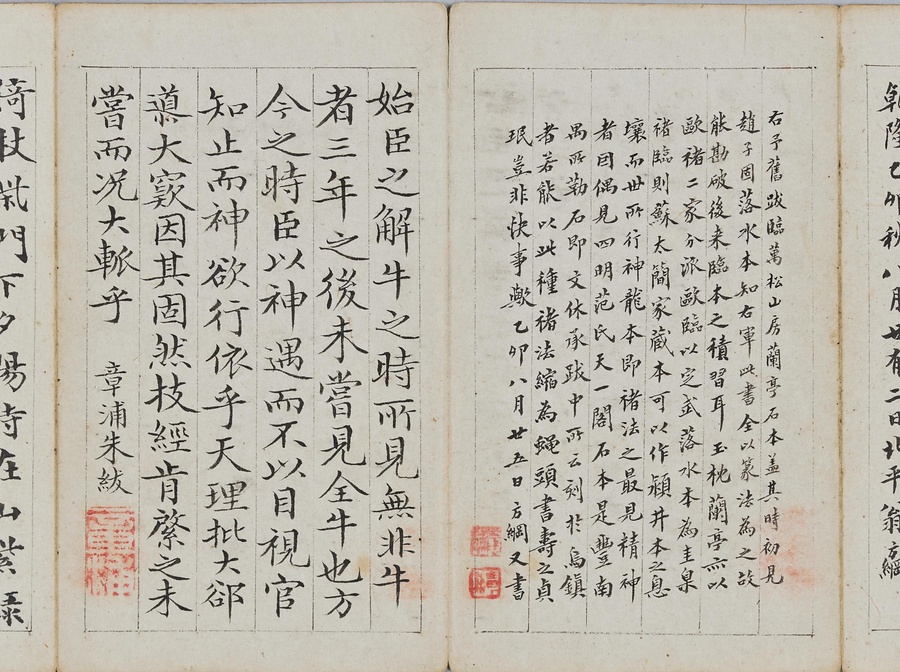 乾隆乙卯秋八月廿有二日北平翁方綱
右予舊跋臨萬松山房蘭亭石本蓋其時初見
趙子固落水本知右軍此書全以篆法為之故
能勘破後來臨本之積習耳玉枕蘭亭亦以
歐褚二家分派歐臨以定武落水本為圭臬
褚臨則蘇太簡家藏本可以作潁井本之息
壤而世所行神龍本即褚法之最見精神
者因偶見四明范氏天一閣石本是豐南
禺所勒石即文休承跋中所云刻於烏鎮
者若能以此種褚法縮為蠅頭書壽之貞
珉豈非快事歟乙卯八月廿五日方綱又書
始臣之解牛之時所見無非牛
者三年之後未嘗見全牛也方
今之時臣以神遇而不以目視官
知止而神欲行依乎天理批大郤
導大窾因其固然技經肯綮之未
嘗而況大軱乎 章浦朱紱
倚杖柴門下夕陽寺在山紫綠